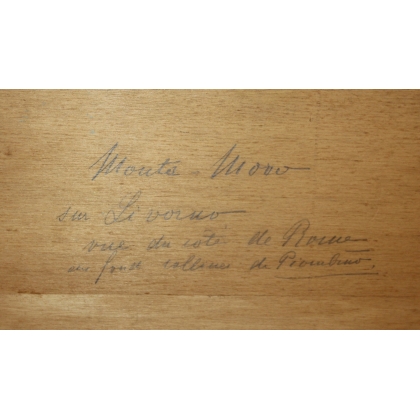 Monte - Moro
sur Livorno
vue du coté de Rome.
au fond collines de Piombino.